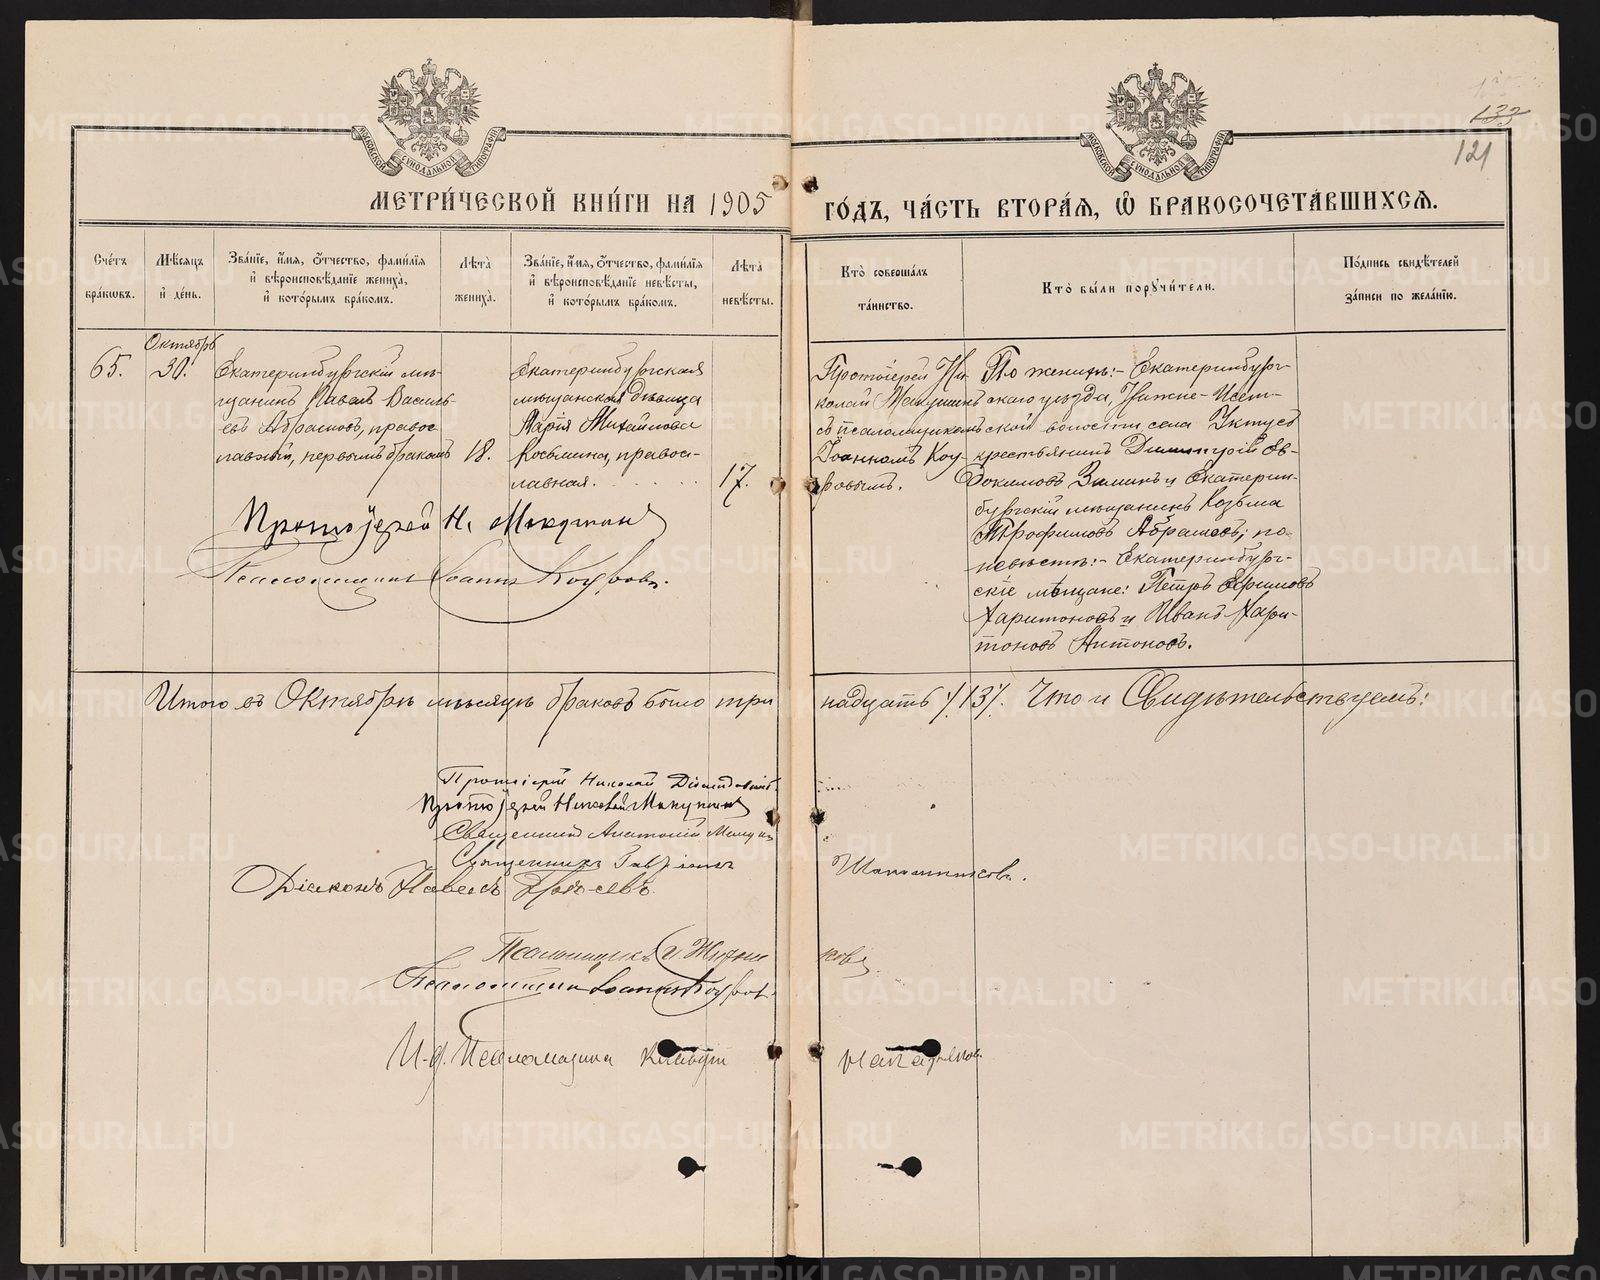 133
121
МЕТРИ́ЧЕСКОЙ КНИ́ГИ НА 1905 ГО́ДЪ, ЧА́СТЬ ВТОРА́Ѧ, Ѽ БРАКОСОЧЕТА́ВШИХСѦ.
Сче́тъ бра́кѡвъ.
Мѣ́сѧцъ и҆ де́нь.
Зва́нїе, и҆́мѧ, ѻ҆́тчество, фами́лїѧ
и҆ вѣроисповѣ́данїе жениха̀,
и҆ кото́рымъ бра́комъ.
Лѣ́та жениха̀.
Зва́нїе, и҆́мѧ, ѻ҆́тчество, фами́лїѧ
и҆ вѣроисповѣ́данїе невѣ́сты,
и҆ кото́рымъ бра́комъ.
Лѣ́та невѣ́сты.
Кто̀ соверша́лъ
та́инство.
Кто̀ бы́ли порꙋчи́тели.
По́дпись свидѣ́телей
за́писи по жела́нїю.
65.
Октябрь
30.
Екатеринбургскій мѣ-
щанинъ Павелъ Василь-
евъ Абрамовъ, правос
лавный, первымъ бракомъ
18.
Екатеринбургская
мѣщанская дѣвица
Марія Михайлова
Косьмина, правос-
лавная.
17.
Протоіерей Ни-
колай Макушинъ
съ псаломщикомъ
Іоанномъ Коу-
ровымъ.
По женихѣ:- Екатеринбург-
скаго уѣзда, Нижне-Исет-
ской волости села Уктусъ
крестьянинъ Димитрій Ев-
докимовъ Зиминъ и Екатерин-
бургскій мѣщанинъ Козьма
Трофимовъ Абрамовъ; по
невѣстѣ:- Екатеринбург-
скіе мѣщане: Петръ Ефимовъ
Харитоновъ и Иванъ Хари-
тоновъ Антоновъ.
Протоіерей Н. Макушинъ
Псаломщикъ Іоаннъ Коуровъ.
Итого въ Октябрѣ мѣсяцѣ браковъ было тринадцать /13/. Что и Свидѣтельствуемъ:
Протоіерей Николай
Протоіерей Николай Макушинъ
Священникъ Анатолій
Священникъ Гавріилъ Шапошниковъ.
Діаконъ Павелъ
Псаломщикъ
Псаломщикъ Іоаннъ Коуровъ.
И. д. Псаломщика